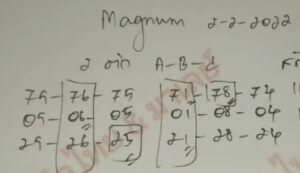 Magnum 2-2-2022
2 ตัว A-B-C
79-76-75 71-78-74
09-06-05 01-08-04
29-26-25 21-28-24